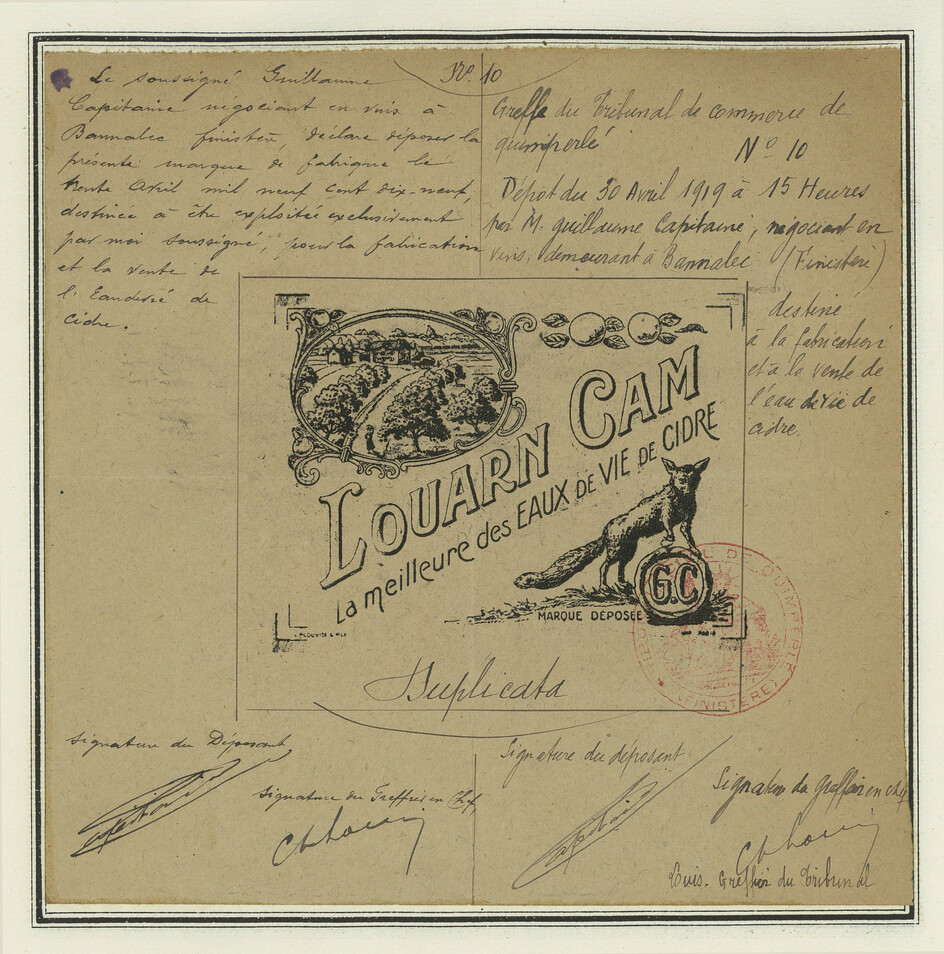 No. 10
Le soussigné Guillaume
Capitaine négociant en vins à
Bannalec finistère, déclare déposer la
présente marque de fabrique le
trente Avril mil neuf cent dix-neuf,
destinée à être exploitée exclusivement
par moi soussigné, pour la fabrication
et la vente de
l'Eaudevie de
cidre.
Greffe du Tribunal de commerce de
quimperlé
No 10
Dépot du 30 Avril 1919 à 15 Heures
par M. guillaume Capitaine, négociant en
vins, demeurant à Bannalec (Finistère)
destiné
à la fabrication
et à la vente de
l'eau de vie de
cidre.
LOUARN CAM
La meilleure des EAUX DE VIE DE CIDRE
G.C
MARQUE DÉPOSÉE
TRIBUNAL DE QUIMPERLÉ
(FINISTÈRE)
Duplicata
Signature du Déposant
Signature du Greffier en Chef
Signature du déposant
Signature du greffier en chef
Greffier du Tribunal